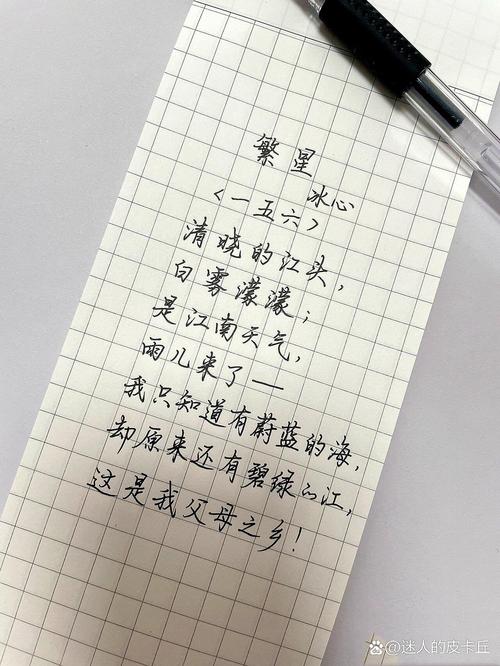 繁星
冰心
〈一五六〉
清晓的江头，
白雾濛濛；
是江南天气，
雨儿来了——
我只知道有蔚蓝的海，
却原来还有碧绿的江，
这是我父母之乡！
@迷人的皮卡丘